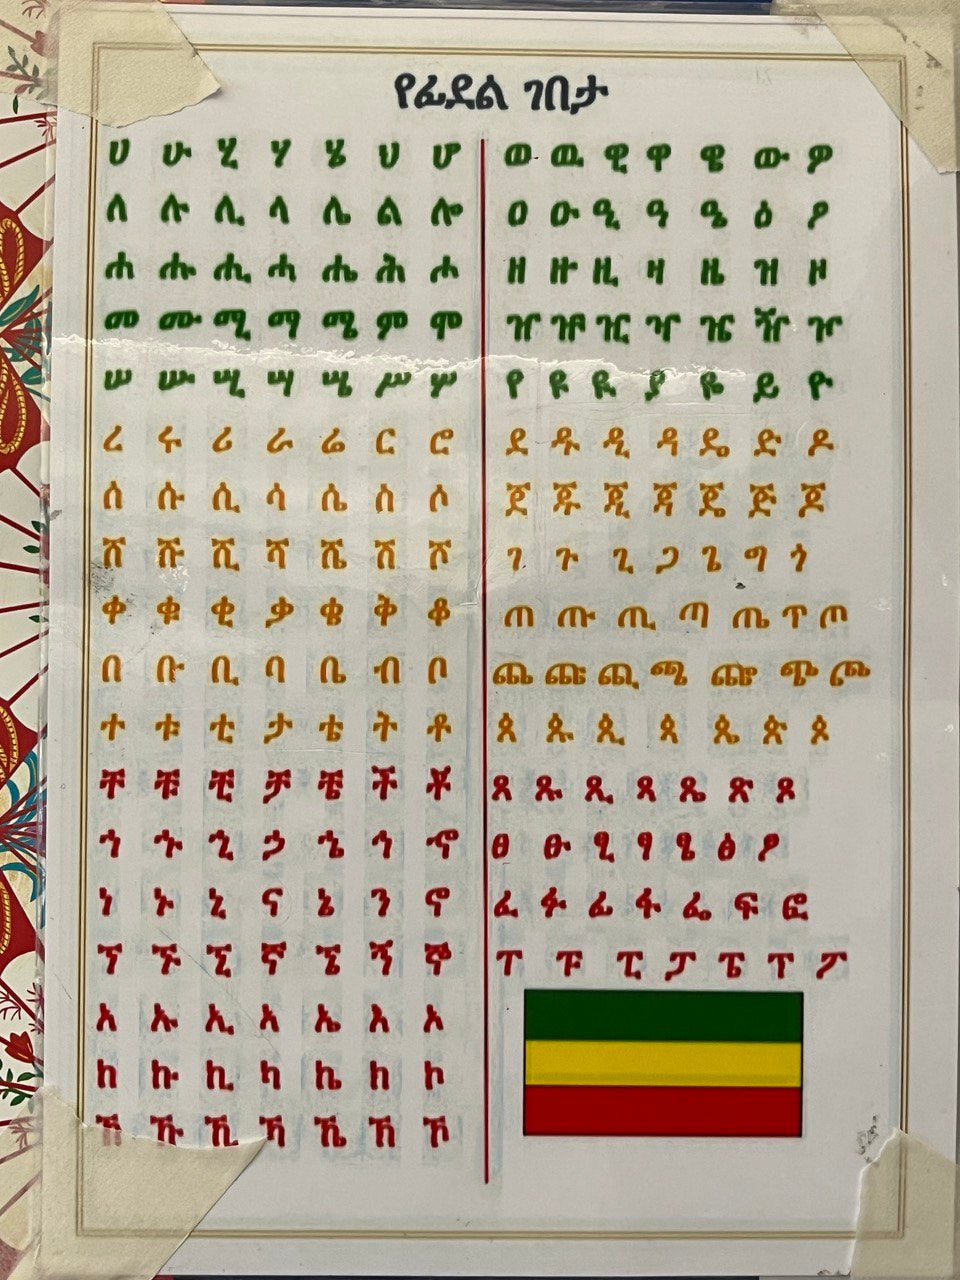 የፊደል ገበታ
ሀ ሁ ሂ ሃ ሄ ህ ሆ
ለ ሉ ሊ ላ ሌ ል ሎ
ሐ ሑ ሒ ሓ ሔ ሕ ሖ
መ ሙ ሚ ማ ሜ ም ሞ
ሠ ሡ ሢ ሣ ሤ ሥ ሦ
ረ ሩ ሪ ራ ሬ ር ሮ
ሰ ሱ ሲ ሳ ሴ ስ ሶ
ሸ ሹ ሺ ሻ ሼ ሽ ሾ
ቀ ቁ ቂ ቃ ቄ ቅ ቆ
በ ቡ ቢ ባ ቤ ብ ቦ
ተ ቱ ቲ ታ ቴ ት ቶ
ቸ ቹ ቺ ቻ ቼ ች ቾ
ኀ ኁ ኂ ኃ ኄ ኅ ኆ
ነ ኑ ኒ ና ኔ ን ኖ
ኘ ኙ ኚ ኛ ኜ ኝ ኞ
አ ኡ ኢ ኣ ኤ እ ኦ
ከ ኩ ኪ ካ ኬ ክ ኮ
ኸ ኹ ኺ ኻ ኼ ኽ ኾ
ወ ዉ ዊ ዋ ዌ ው ዎ
ዐ ዑ ዒ ዓ ዔ ዕ ዖ
ዘ ዙ ዚ ዛ ዜ ዝ ዞ
ዠ ዡ ዢ ዣ ዤ ዥ ዦ
የ ዩ ዪ ያ ዬ ይ ዮ
ደ ዱ ዲ ዳ ዴ ድ ዶ
ጀ ጁ ጂ ጃ ጄ ጅ ጆ
ገ ጉ ጊ ጋ ጌ ግ ጎ
ጠ ጡ ጢ ጣ ጤ ጥ ጦ
ጨ ጩ ጪ ጫ ጬ ጭ ጮ
ጰ ጱ ጲ ጳ ጴ ጵ ጶ
ጸ ጹ ጺ ጻ ጼ ጽ ጾ
ፀ ፁ ፂ ፃ ፄ ፅ ፆ
ፈ ፉ ፊ ፋ ፌ ፍ ፎ
ፐ ፑ ፒ ፓ ፔ ፕ ፖ